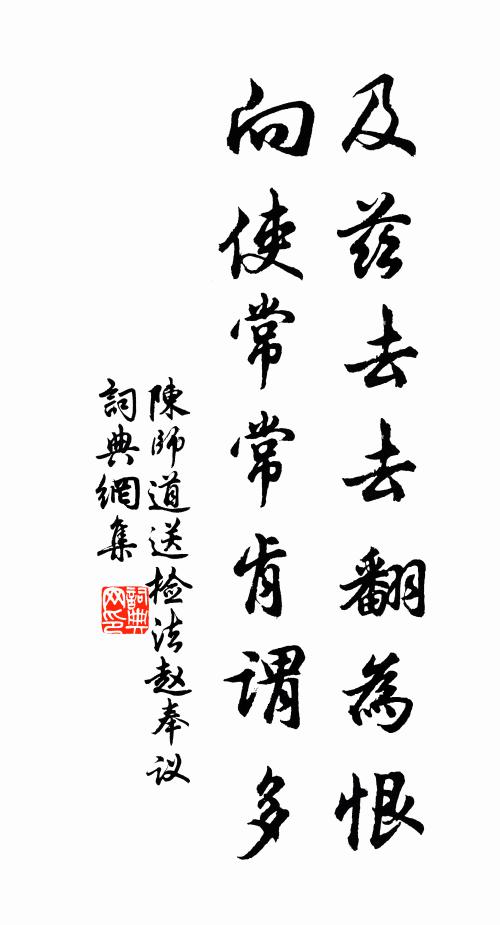 及茲去去翻為恨
向使常常肯謂多
陳師道送检法赵奉议
詞典網集
詞典网印